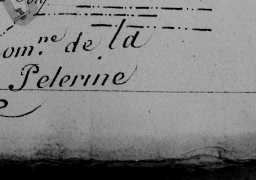 om.ne de la
Pelerine